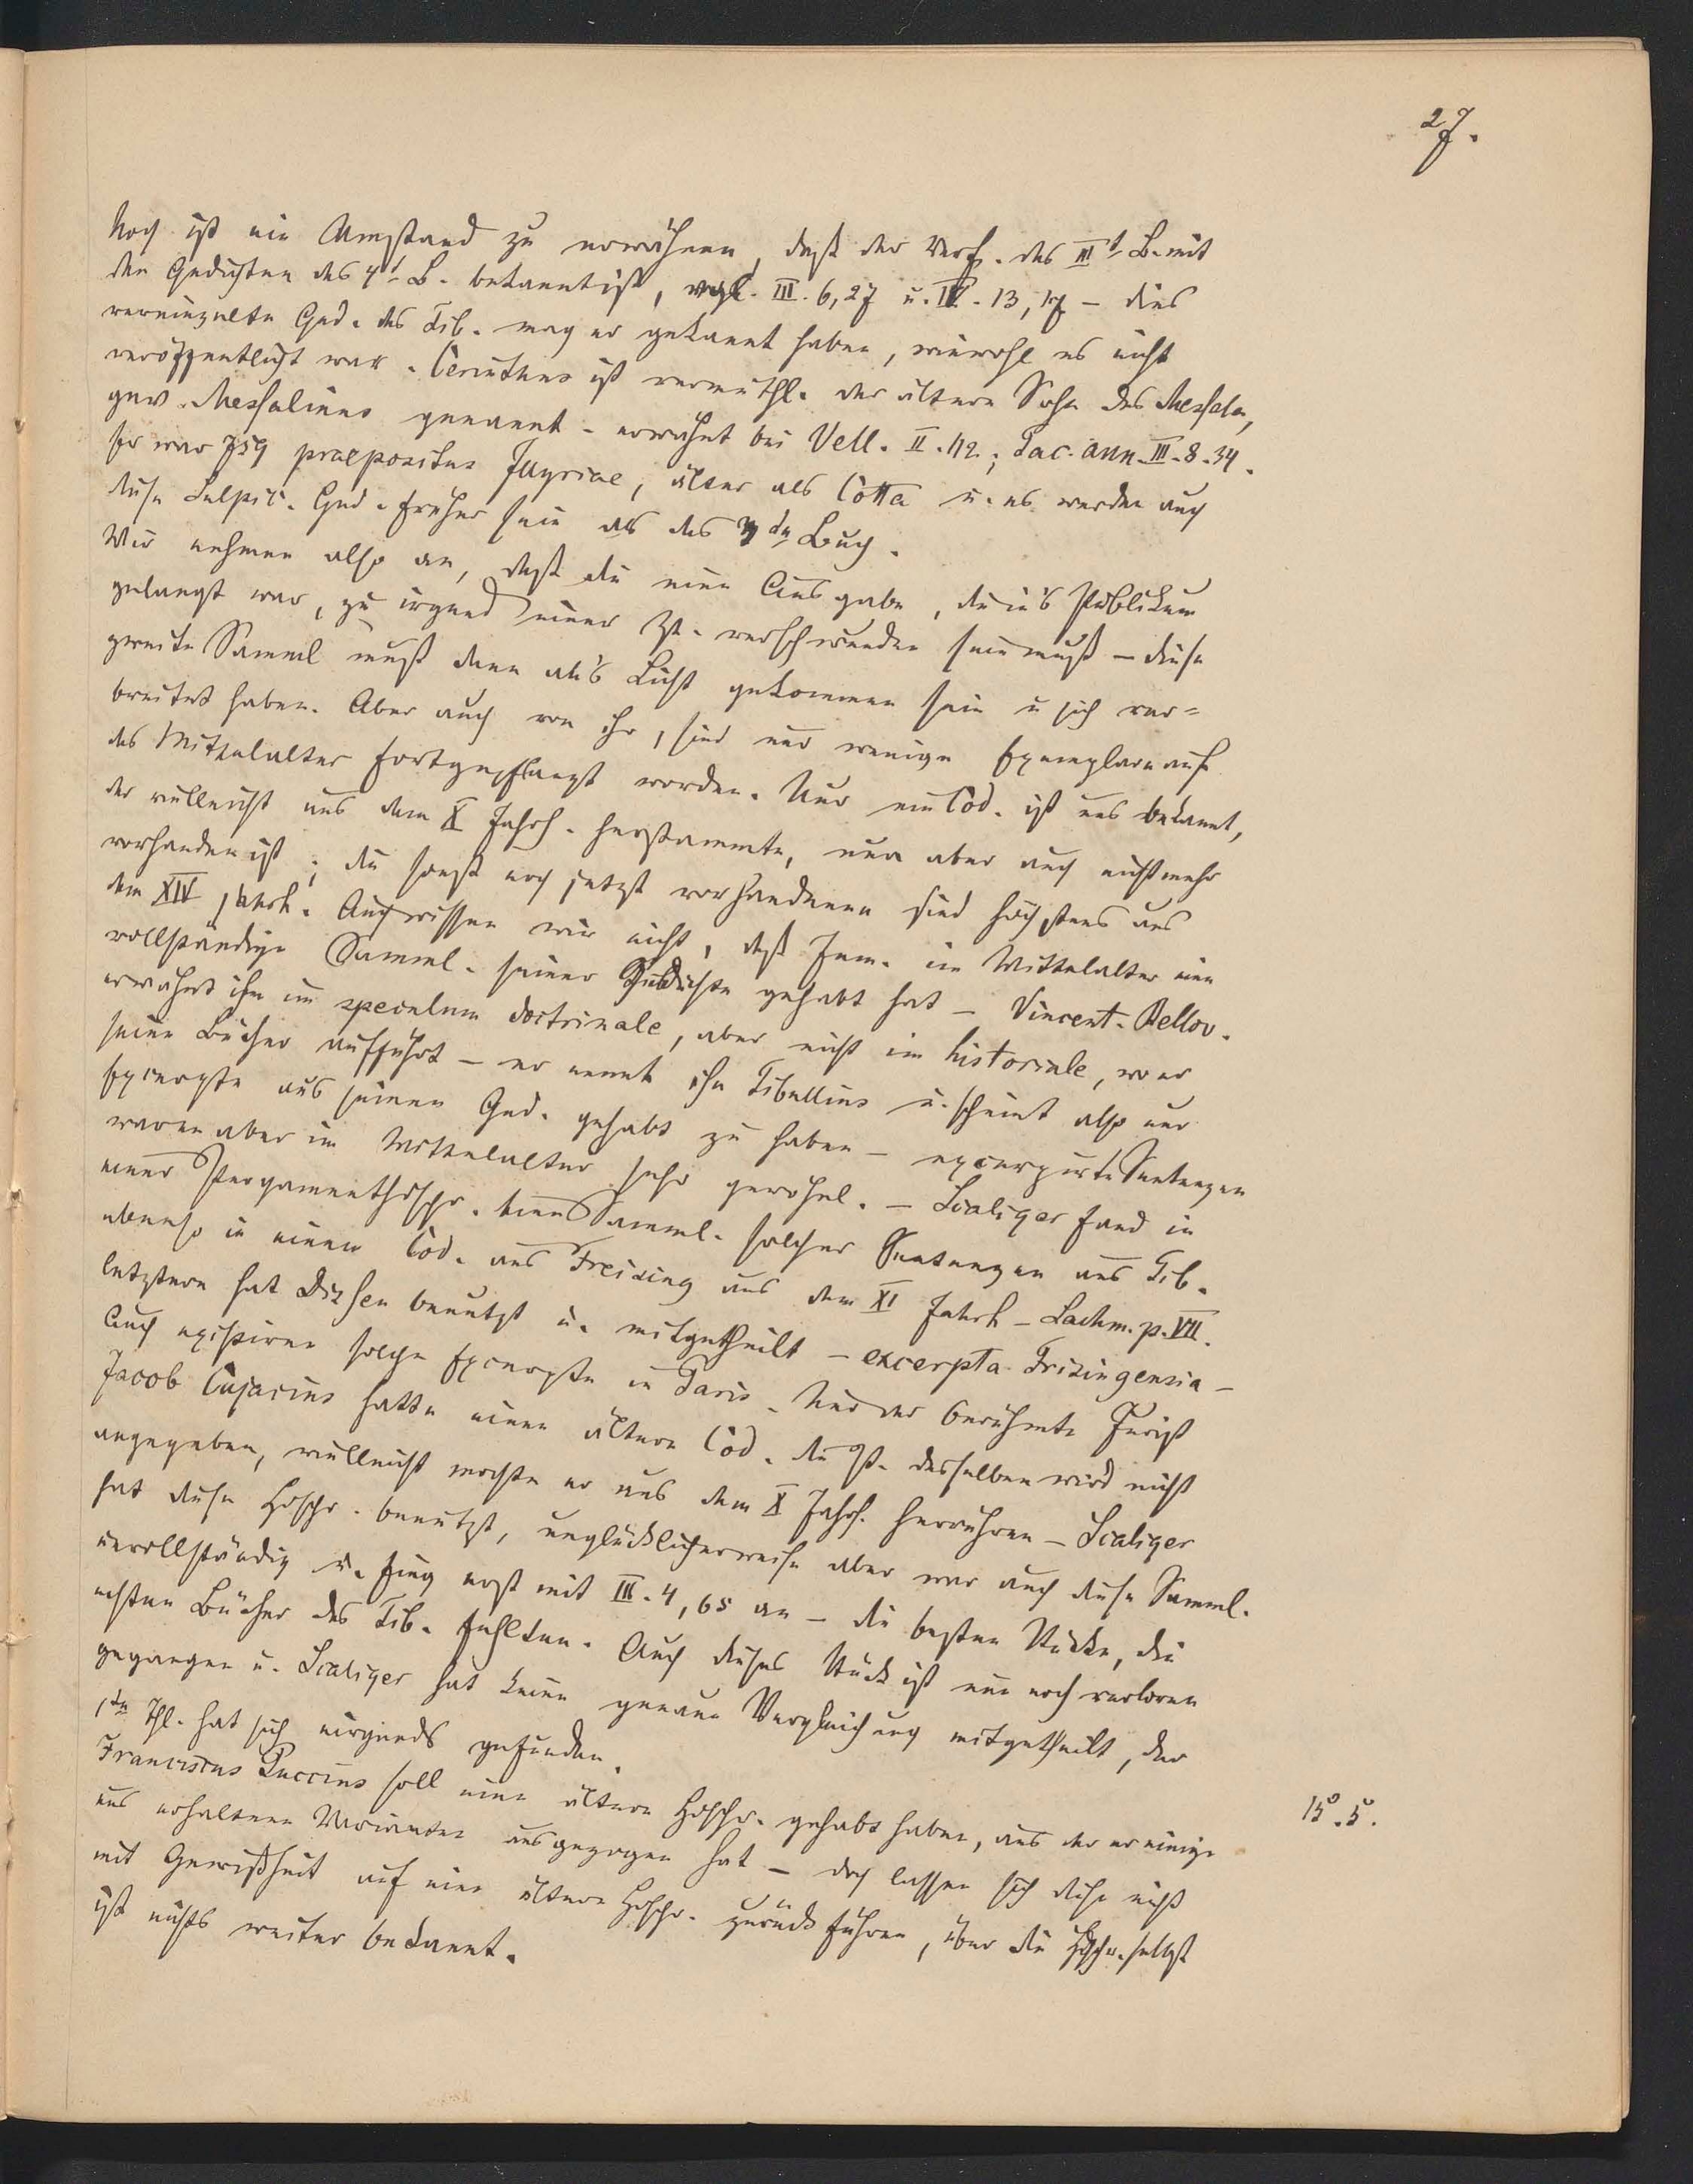 27.
Noch ist ein Umstand zu erwähnen, daß der Verf. des III t. B. mit
den Gedichten des 4 t. B. bekannt ist, vrgl. III. 6, 27 u. IV. 13, 17 – dies
vereinzelte Ged. des Tib. mag er gekannt haben, wiewohl es nicht
veröffentlicht war. Cerinthus ist vermuthl. der ältere Sohn des Messala,
gew. Messalinus genannt – erwähnt bei Vell. II. 112.; Tac. ann. III. 8. 34.
Er war 759 praepositus Illyriae, älter als Cotta u. es werden auch
diese Sulpic. Ged. früher sein als das 3 te Buch.
Wir nehmen also an, daß die eine Ausgabe, die in's Publikum
gelangt war, zu irgend einer Zt. verschwunden sein muß – diese
zweite Samml muß dann an's Licht gekommen sein u sich ver=
breitet haben. Aber auch von ihr, sind nur wenige Exemplare auf
das Mittelalter fortgepflanzt worden. Nur ein Cod. ist uns bekannt,
der vielleicht aus dem X Jahrh. herstammte, nun aber auch nicht mehr
vorhanden ist; die sonst noch jetzt vorhandenen sind höchstens aus
dem XIV Jahrh. Auch wissen wir nicht, daß Jem. im Mittelalter eine
vollständige Samml. seiner Gedichte gehabt hat – Vincent. Bellov.
erwähnt ihn im speculum doctrinale, aber nicht im historiale, wo er
seine Bücher aufführt – er nennt ihn Tibullius u. scheint also nur
Excerpte aus seinen Ged. gehabt zu haben – excerpirte Sentenzen
waren aber im Mittelalter sehr gewöhnl. – Scaliger fand in
einer Pergamenthdschr. eine Samml. solcher Sentenzen aus Tib.
ebenso in einem Cod. aus Freising aus dem XI Jahrh – Lachm. p. VII.
letztere hat Dissen benutzt u. mitgetheilt – excerpta Frisingensia –
Auch existiren solche Excerpte in Paris. Nur der berühmte Jurist
Jacob Cujacius hatte einen ältern Cod. die Zt. desselben wird nicht
angegeben, vielleicht mochte er aus dem X Jahrh. herrühren – Scaliger
hat diese Hdschr. benutzt, unglücklicherweise aber war auch diese Samml.
unvollständig u. fing erst mit III. 4, 65 an – die besten Stücke, die
ersten Bücher des Tib. fehlten. Auch dieses Stück ist nun noch verloren
gegangen u. Scaliger hat keine genaue Vergleichung mitgetheilt, der
1 te Thl. hat sich nirgends gefunden.
Franciscus Puccius soll eine ältere Hdschr. gehabt haben, aus der er einige
uns erhaltene Varianten ausgezogen hat – doch lassen sich diese nicht
mit Gewißheit auf eine ältere Hdschr. zurückführen, über die Hdschr. selbst
ist nichts weiter bekannt.
15°. 5°.